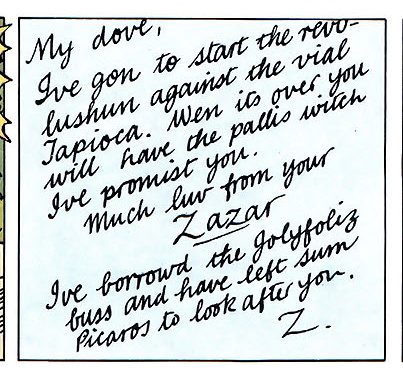 My dove,
Ive gon to start the revo-
lushun against the vial
Tapioca. Wen its over you
will have the pallis witch
Ive promist you.
Much luv from your
Zazar
Ive borrowd the Jolyfoliz
buss and have left sum
Picaros to look after you.
Z.